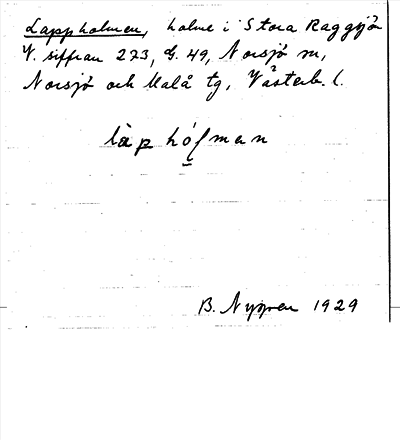 Lappholmen, holme i Stora Raggsjö
V. siffran 273, G. 49, Norsjö sn,
Norsjö och Malå tg, Västerb. l.
làp hó̤ɭmen
B. Nygren 1929